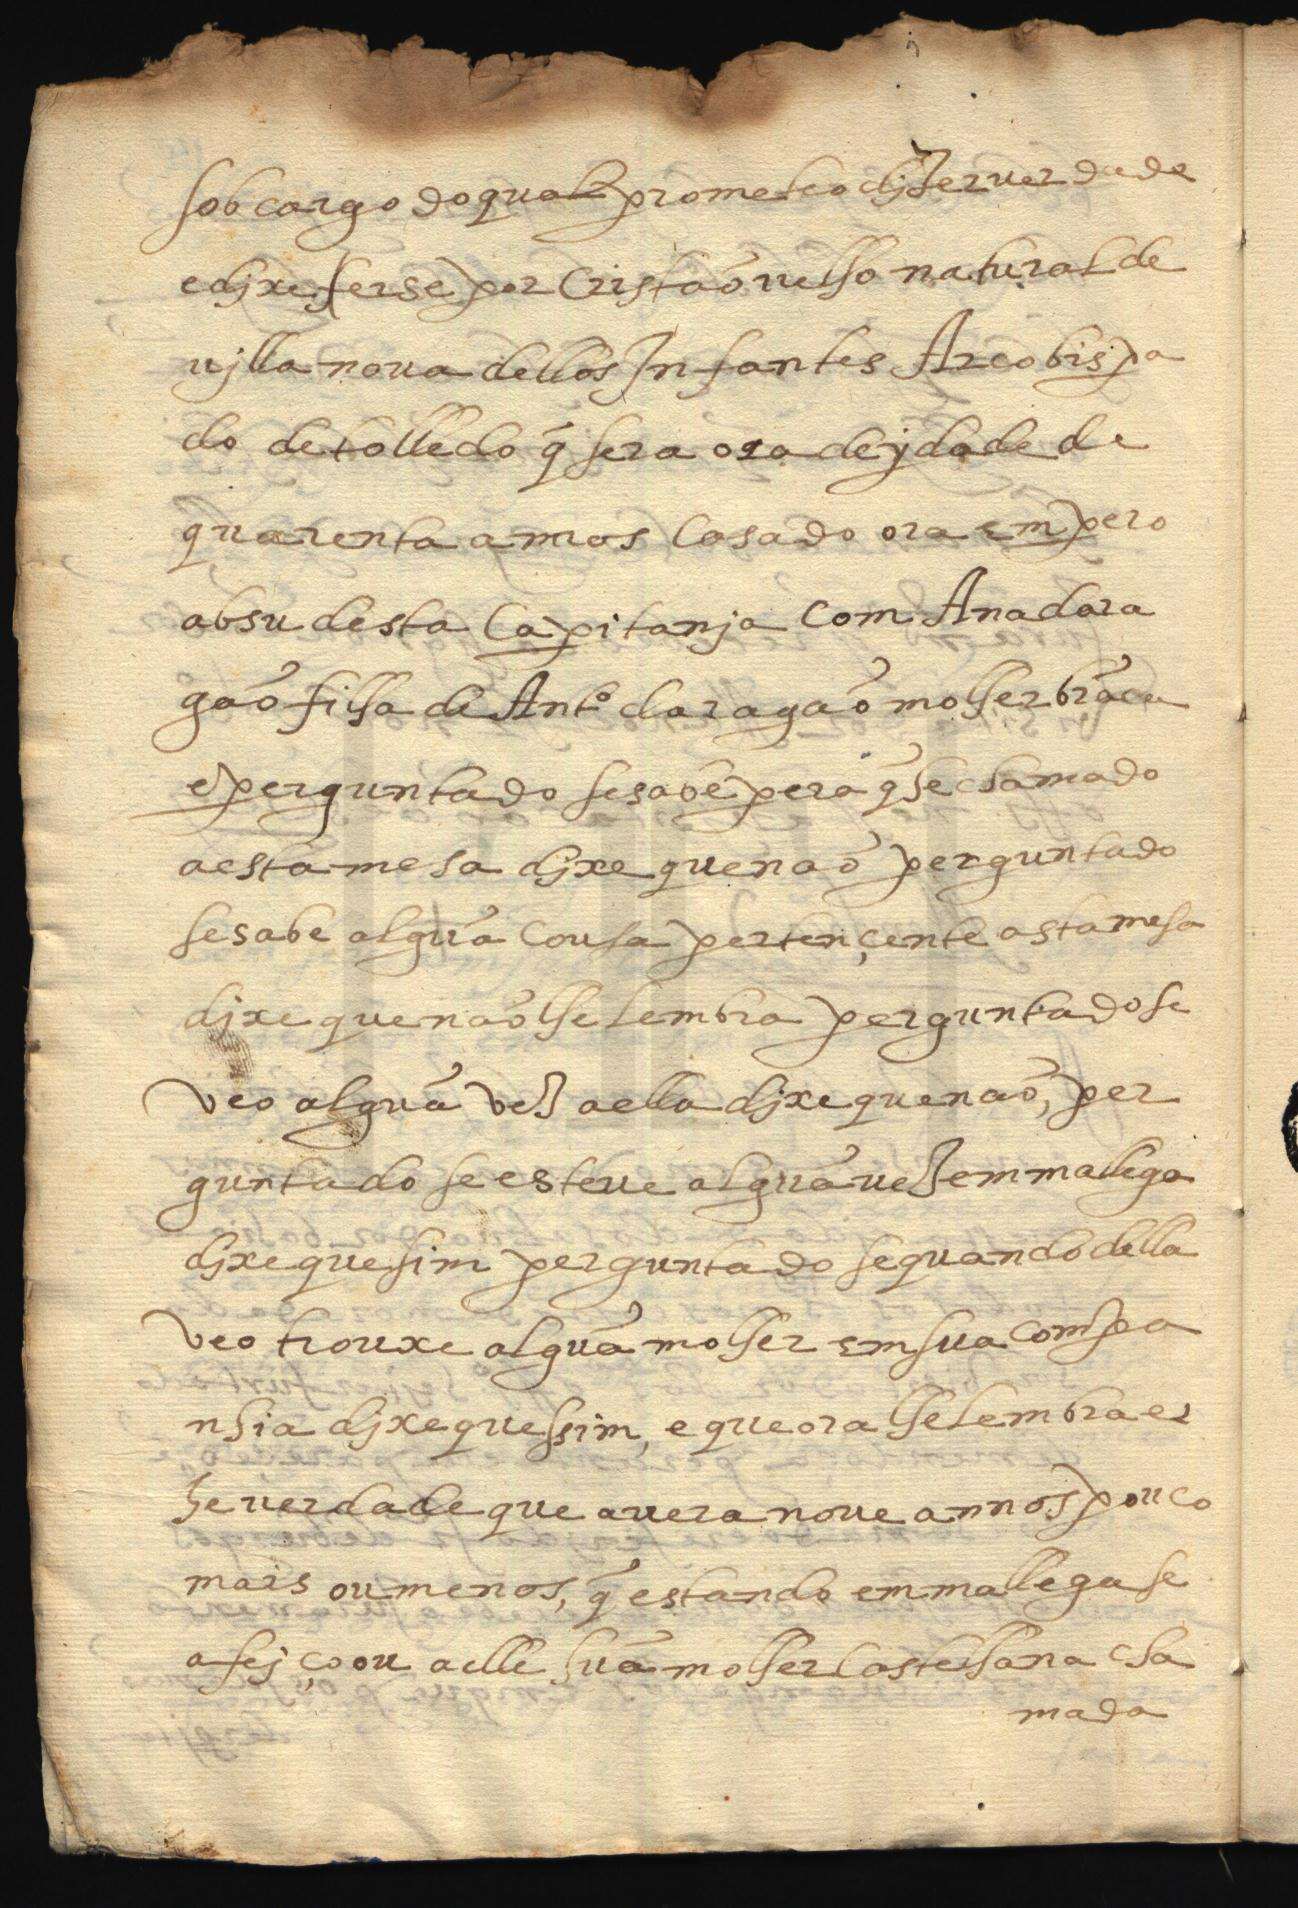 sob cargo do qual prometeo dizer verdade
e dixe ser se por Cristaõ velho natural de
vjlla nova dellos Infantes Arcobispa
do de tolledo q̃ sera ora de ydade de
quarenta annos Casado ora em pero
absu desta Capitanja com Ana dara
gaõ filha de Antº daragaõ molher brãca
e perguntado se sabe pera q̃ he chamado
a esta mesa dixe que naõ perguntado
se sabe algũa Cousa pertençente a sta mesa
dixe que naõ lhe lembra perguntado se
veo algũa vez a ella dixe que naõ, per
guntado se esteve algũa vez em mallega
dixe que sim perguntado se quando della
veo trouxe algũa molher em sua compa
nhia dixe que ssim, e que ora lhe lembra e
he verdade que avera nove annos pouco
mais ou menos, q̃ estando em mallega se
afejçoou a elle hũa molher Castelhana cha
mada